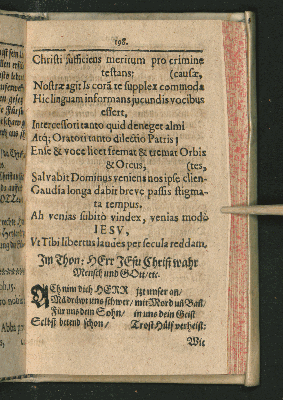 198.
Christi sufficiens meritum pro crimine
testans; (causæ,
Nostræ agit is corã te supplex commoda
Hic linguam informans jucundis vocibus
esset,
Intercessori tanto quid deneget almi
Atq; Oratori tanto dilectio Patris;
Ense & voce licet fremat & tremat Orbis
& Orcus, (tes,
Salvabit Dominus veniens nos ipse clien-
Gaudia longa dabit breve passis stigma-
ta tempus,
Ah venias subitò vindex, venias modò
IESU,
Vt Tibi libertus laudes per secula reddam.
Im Thon: HErr JEsu Christ wahr
Mensch und GOtt/etc.
ACh nim dich HERR jtzt unser an/
Mã dräut uns schwer/ mit Mord uñ
Für uns dein Sohn/ in uns dein Geist
Selbst betend schon/ Trost/Hülf verheist:
Wie